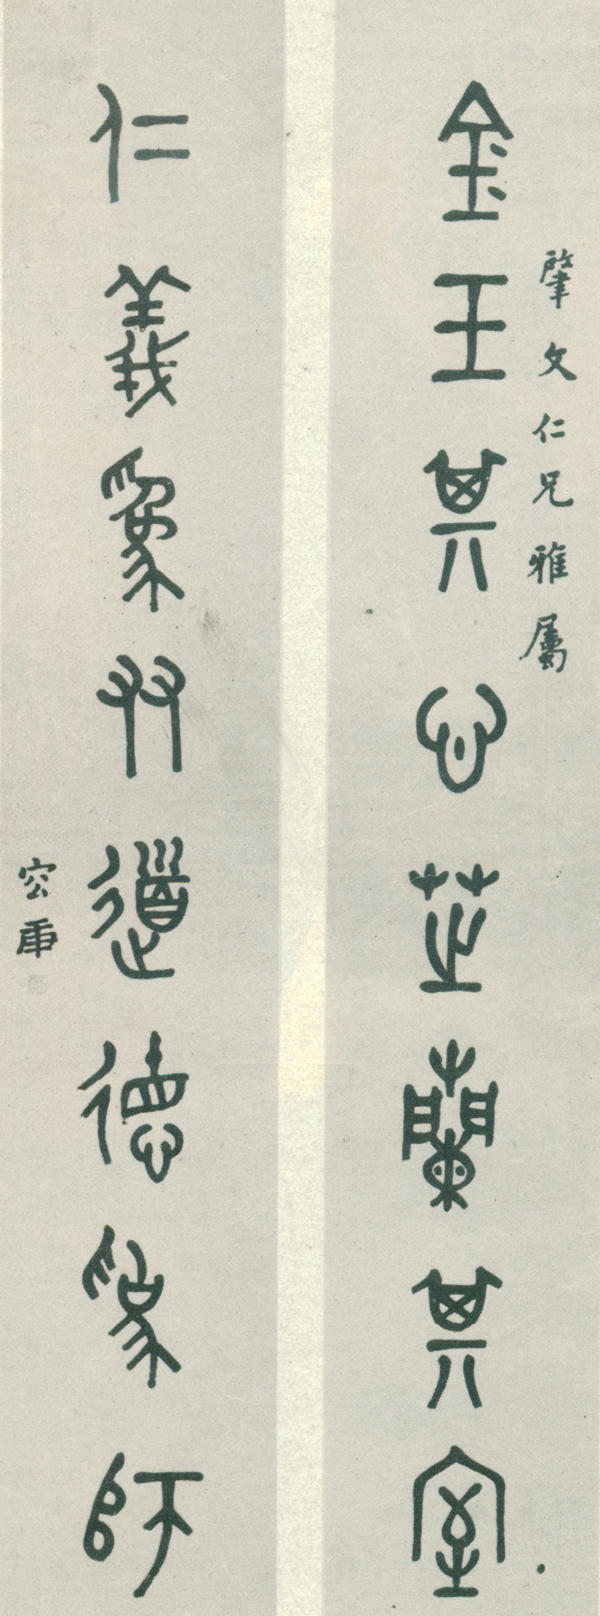 肇文仁兄雅屬
金玉其心芝蘭其室
仁義為友道德為師
容庚